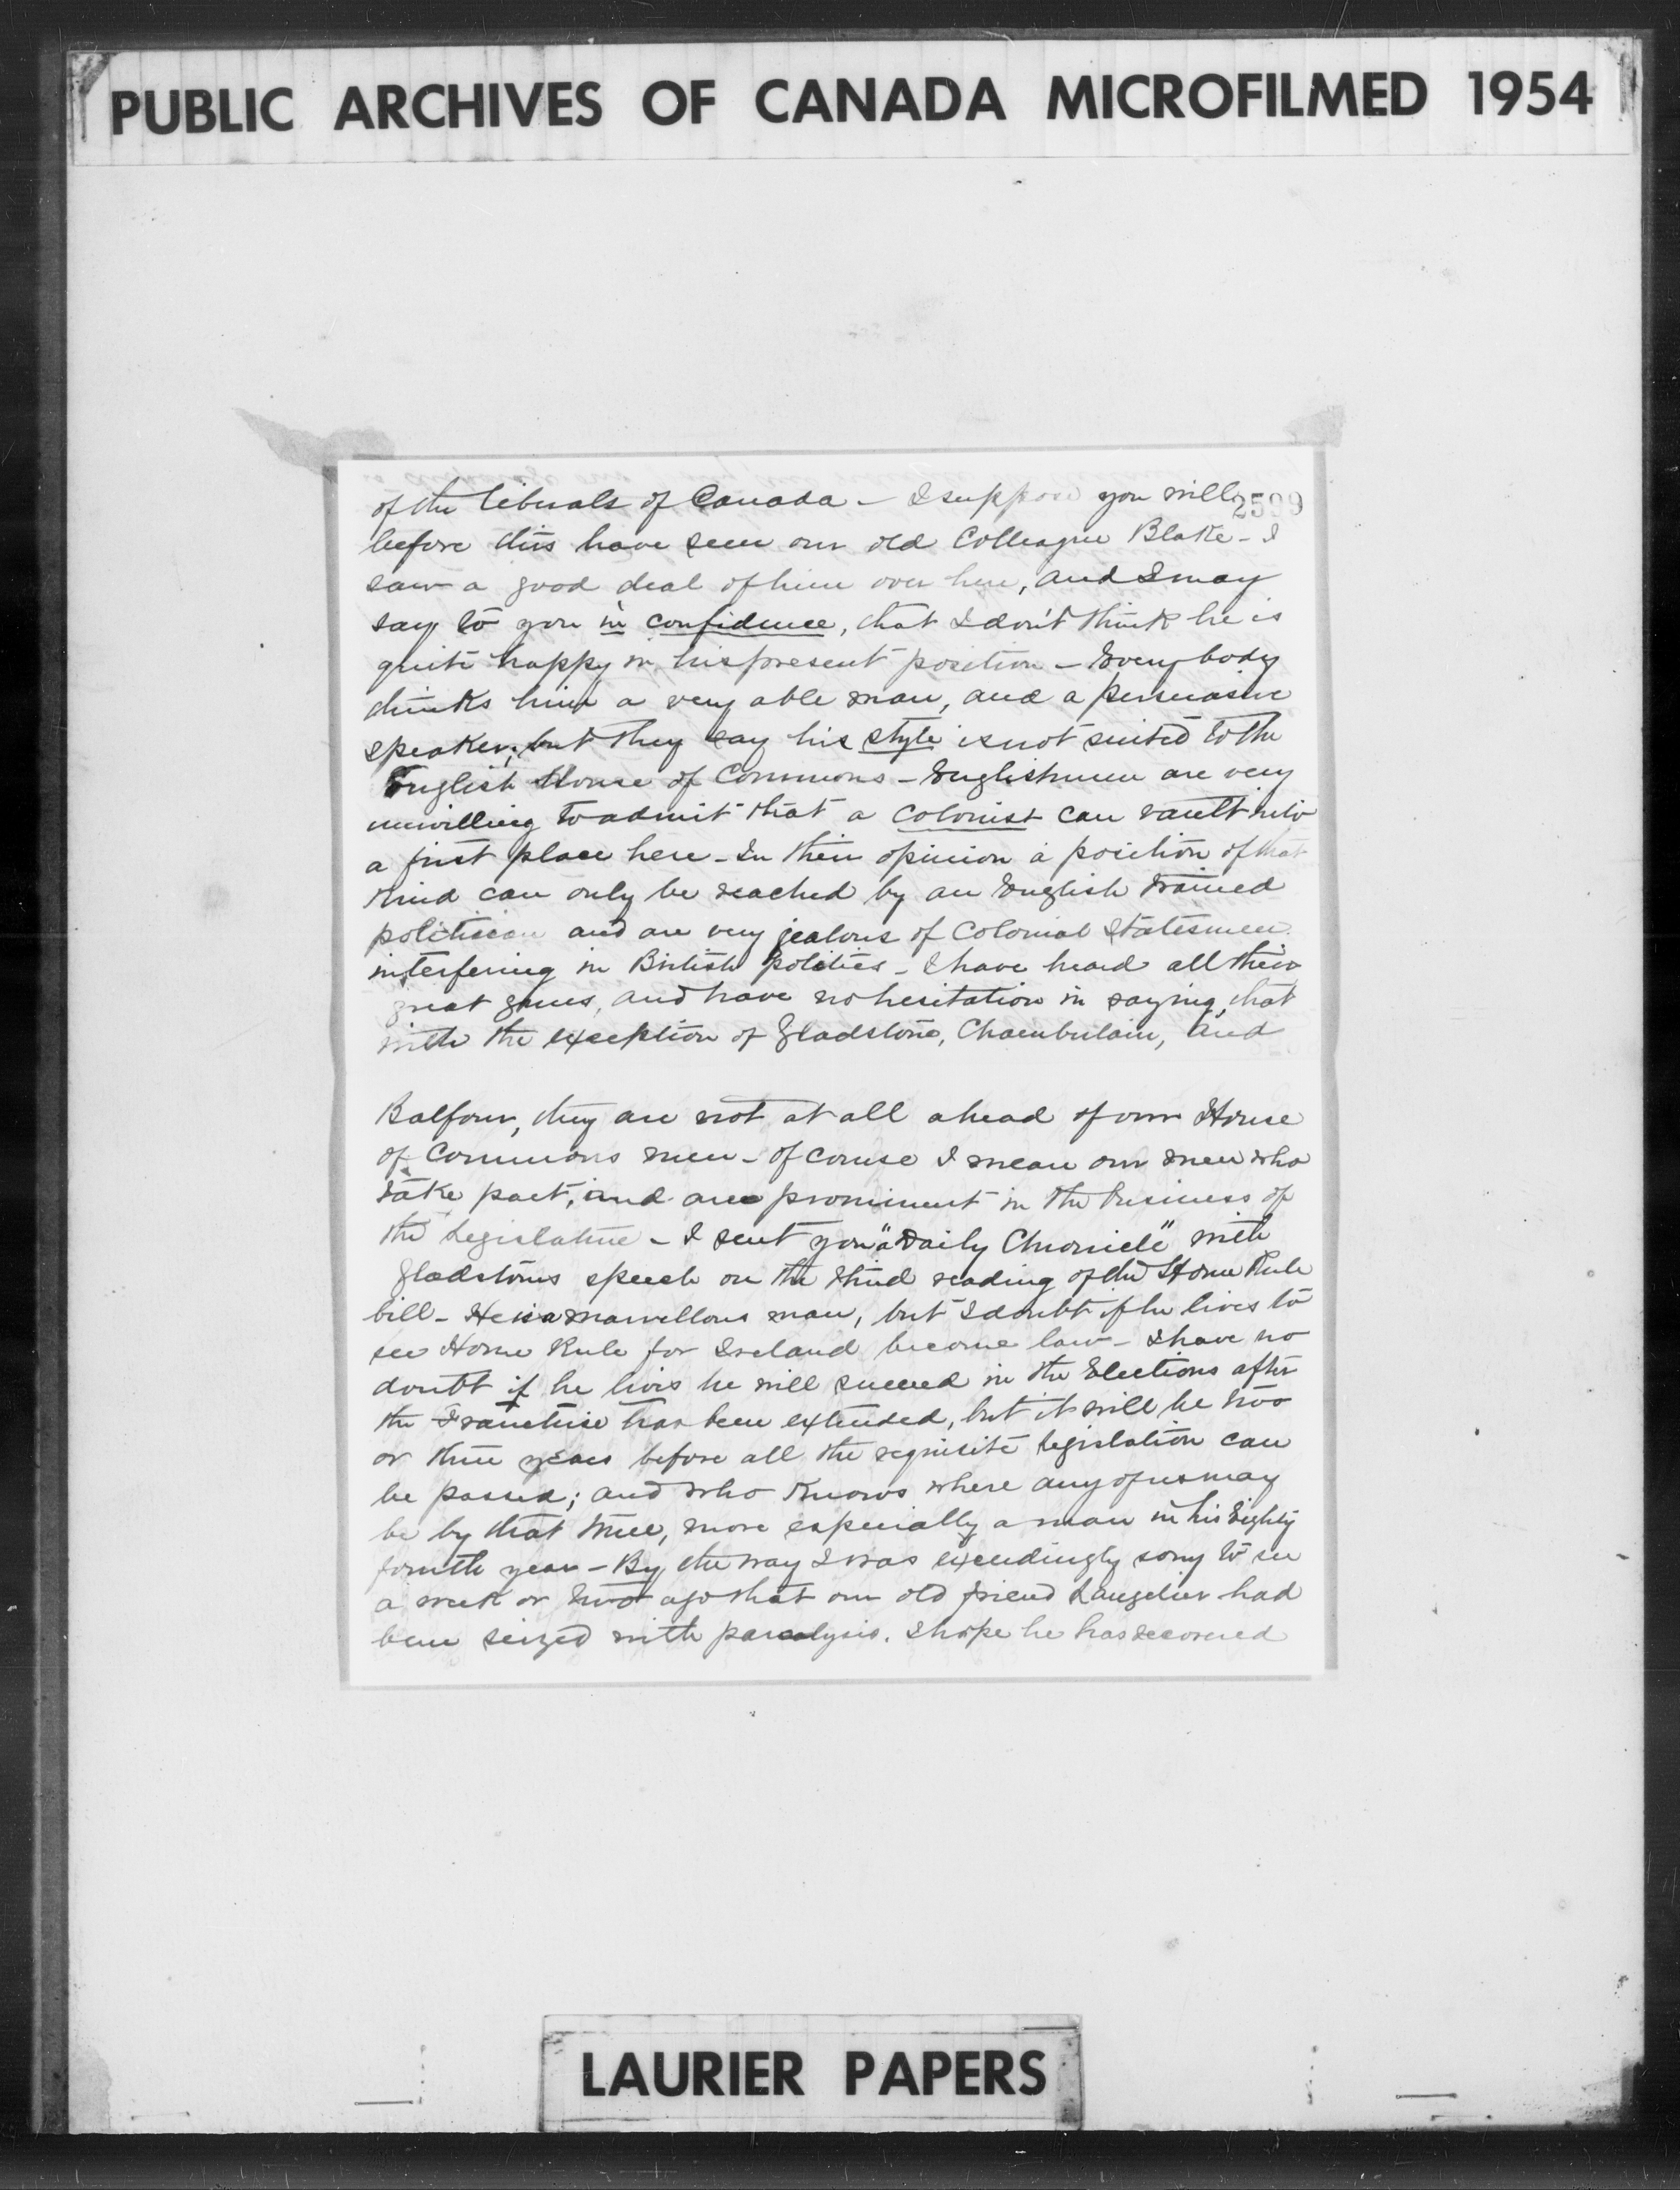 PUBLIC ARCHIVES OF CANADA MICROFILMED 1954
2599
of the Liberals of Canada - I suppose you will
before this have seen our old Colleague Blake - I
saw a good deal of him over here, and I may
say to you in confidence, that I don't think he is
quite happy in his present position - Everybody
thinks him a very able man, and a persuasive
speaker, but they say his style is not suited to the
English House of Commons - Englishmen are very
unwilling to admit that a colonist can vault into
a first place here - In their opinion a position of that
kind can only be reached by an English trained
politician and are very jealous of Colonial Statesmen
interfering in British politics - I have heard all their
great guns, and have no hesitation in saying, that
with the exception of Gladstone, Chamberlain, and
Balfour, they are not at all ahead of our House
of Commons men - of course I mean our men who
take part, and are prominent in the business of
the Legislature - I sent you a "Daily Chronicle" with
Gladstones speech on the third reading of the Home Rule
bill - He is a marvellous man, but I doubt if he lives to
see Home Rule for Ireland become law - I have no
doubt if he lives he will succeed in the Elections after
the Franchise has been extended, but it will be two
or three years before all the requisite legislation can
be passed; and who knows where any of us may
be by that time, more especially a man in his Eighty
fourth year - By the way I was exceedingly sorry to see
a week or two ago that our old friend Langelier had
been seized with paralysis. I hope he has recovered
LAURIER PAPERS